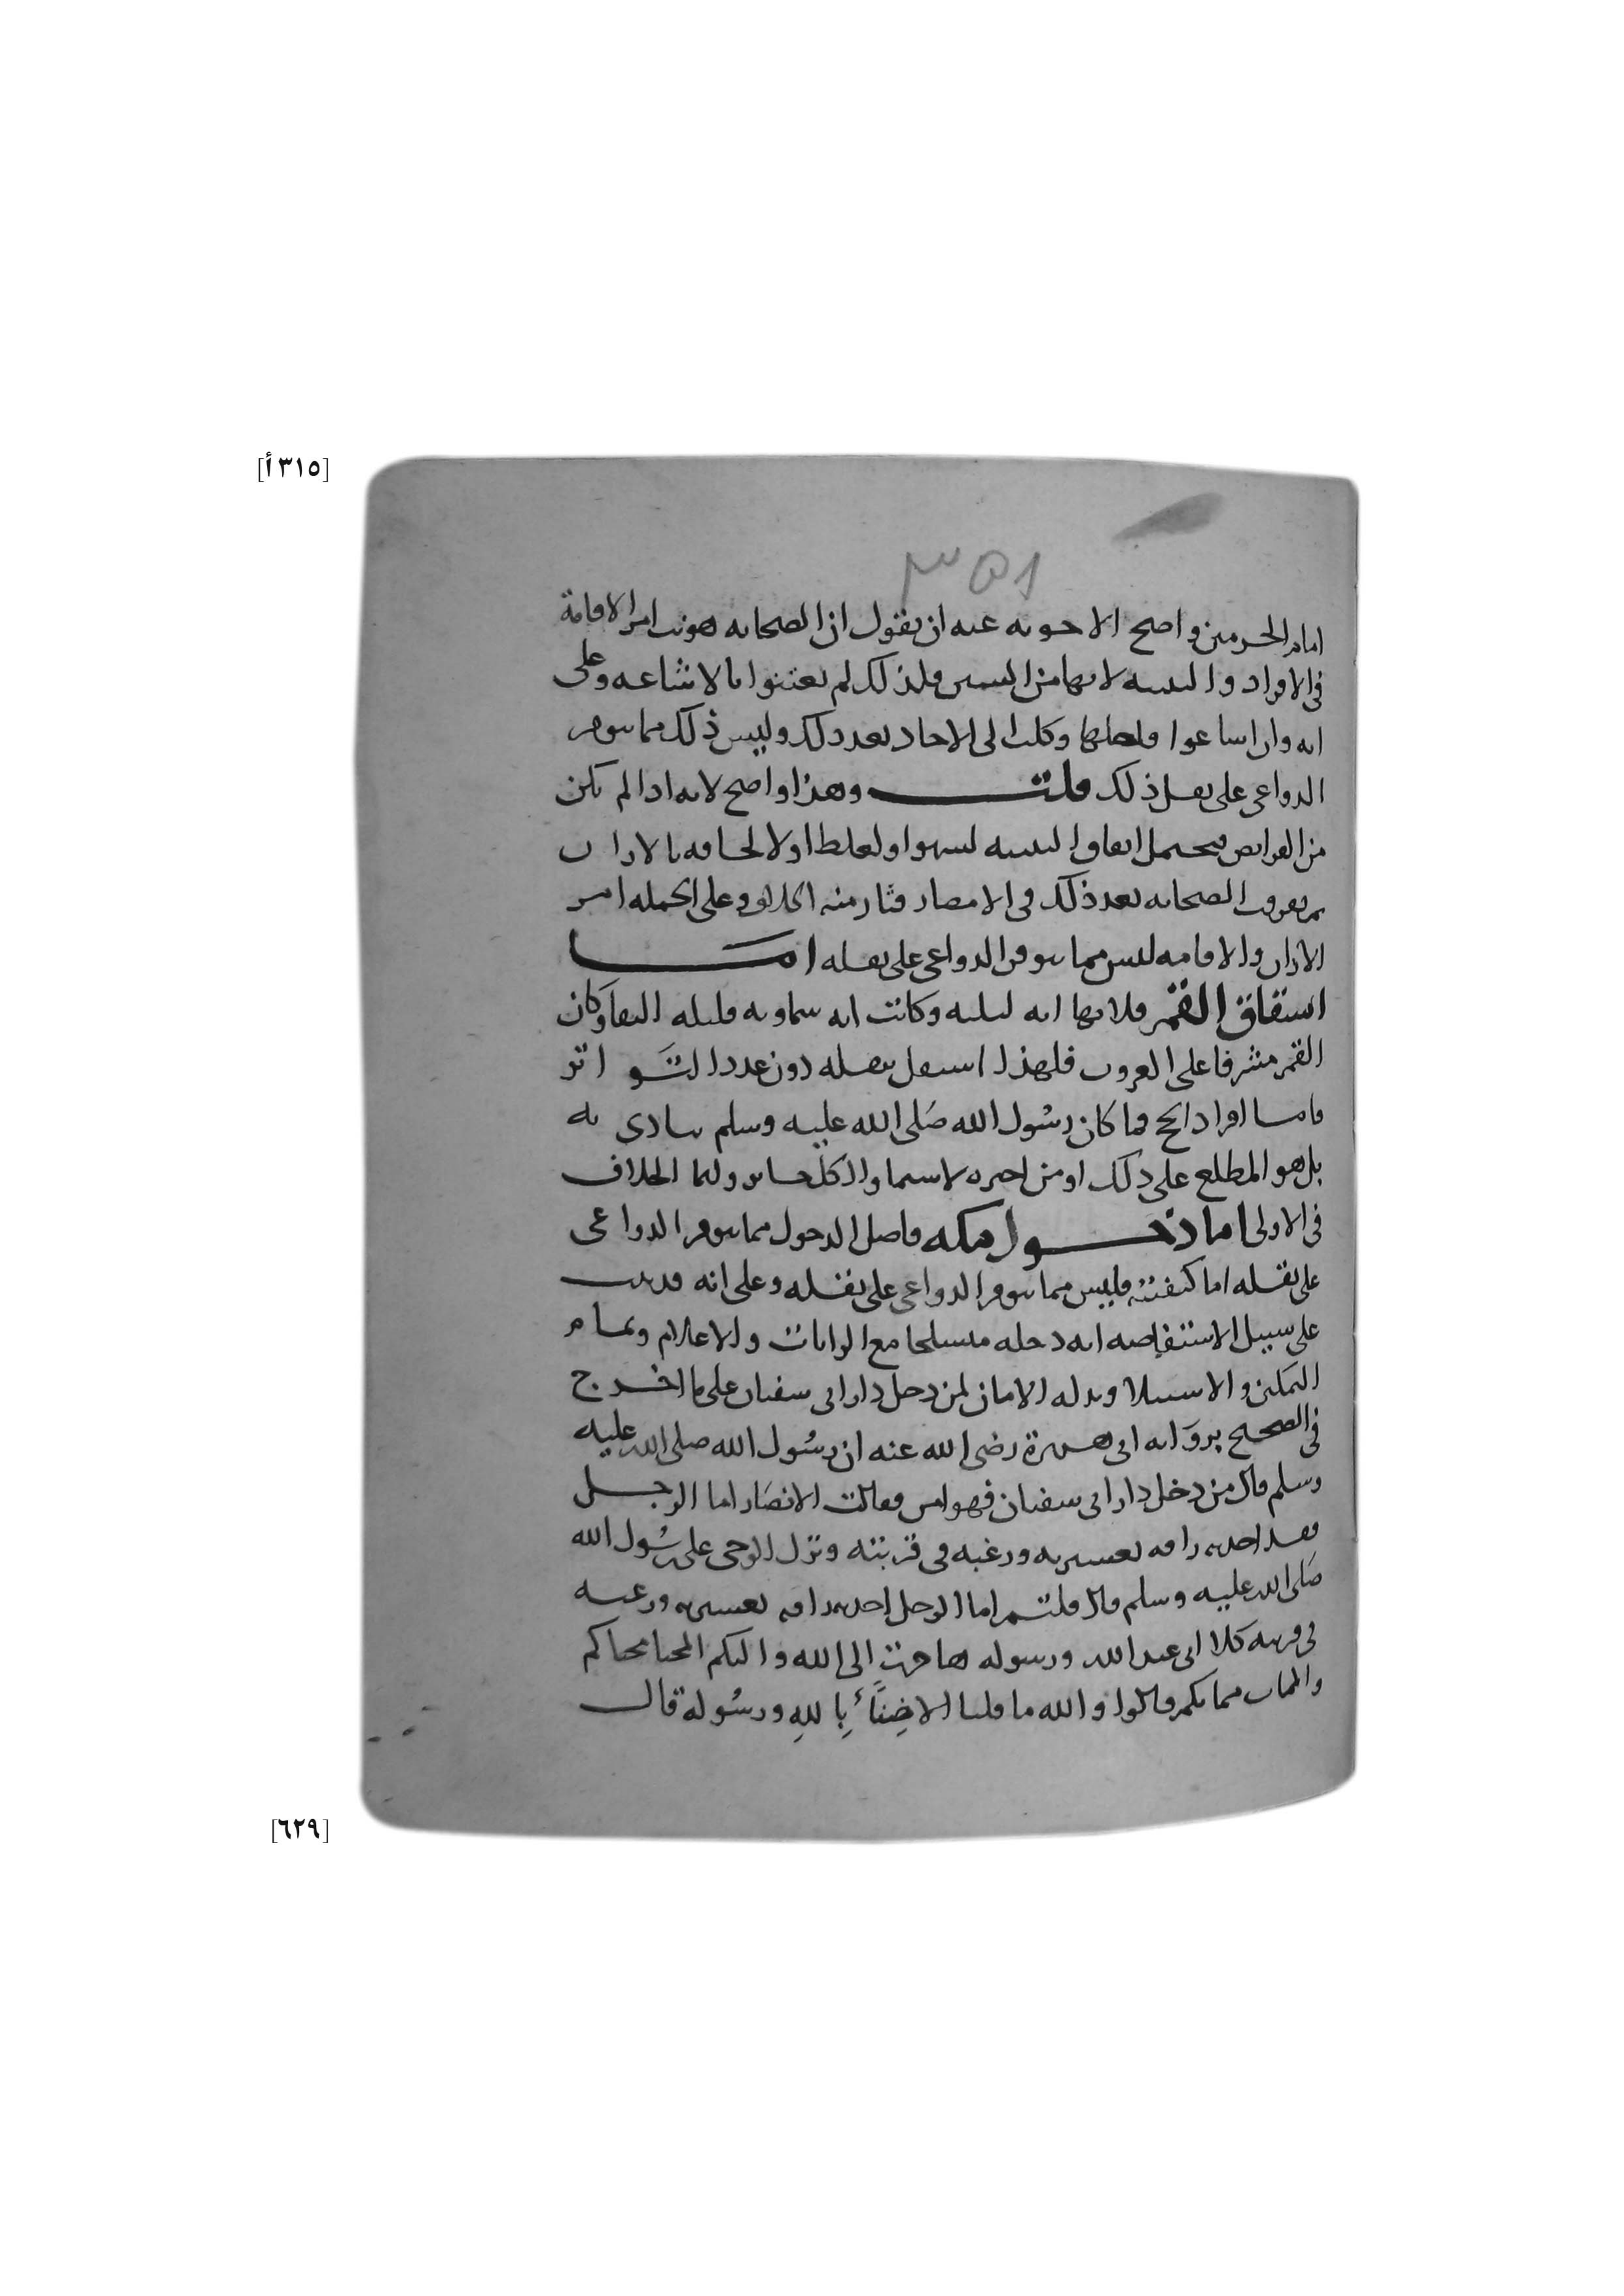 [٣١٥أ]
٣٥١
امام الحرمين واصح الاجوبه عنه ان يقول ان الصحابه هونت امر الاقامة
في الافراد والتثنيه لانها من السنن فلذلك لم يعتنوا بالاشاعه وعلى
انه وان اشاعوا فلعلها وكلت الى الاحاد بعد ذلك وليس ذلك مما تتوفر
الدواعى على نقل ذلك قلت وهذا واضح لانه اذا لم تكن
من الفرايض فيحتمل اتفاق التثنيه لسهو او لغلط او لالحاقه بالاذان
ثم تفرقت الصحابه بعد ذلك في الامصار فثار منه الخلاف وعلى الجمله امر
الاذان والاقامه ليس مما تتوفر الدواعى على نقله امــا
انشقاق القمر فلانها ايه ليليه وكانت ايه سماويه قليله البقا وكان
القمر مشرفا على الغروب فلهذا استقل بنقله دون عدد التــواتر
وامــا افراد الحج فما كان رسُول الله صَلى الله عليه وسلم ينادى به
بل هو المطلع على ذلك او من اخبره لا سيما والكل جايز وانما الخلاف
في الاولى اما دخــول مكه فاصل الدخول مما تتوفر الدواعى
على نقله اما كيفيته فليس مما تتوفر الدواعى على نقله وعلى انه قد ثبت
على سبيل الاستفاضه انه دخله متسلحا مع الرايات والاعلام وتمام
التمكن والاستيلا وبذله الامان لمن دخل دار ابى سفيان على ما اخرج
في الصحيح بروَايه ابى هريرة رضى الله عنه ان رسُول الله صلى الله عليه
وسلم قال من دخل دار ابى سفيان فهو امن فقالت الانصَار اما الرجل
فقد اخذته رافه بعشيرته ورغبه في قريته ونزل الوحى على رسُول الله
صَلى الله عليه وسلم قال قلتم اما الرجل اخذته رافه بعشيرته ورغبه
في قريته كلا انى عبد الله ورسوله هاجرت الى الله واليكم المحيا محياكم
والممات مماتكم قالوا والله ما قلنا الا ضِنًّا بِاللهِ ورسُوله قال
[٦٢٩]